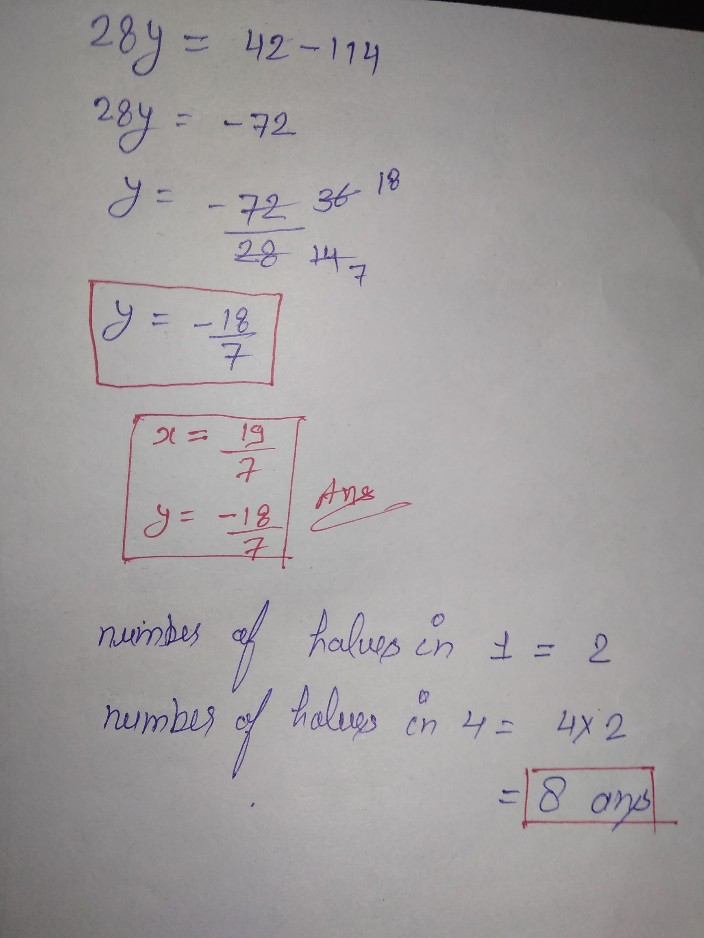 28y = 42 - 114
28y = -72
y = -72/28 36/14 18/7
y = -18/7
x = 19/7
y = -18/7 Ans
number of halves in 1 = 2
number of halves in 4 = 4×2
= 8 ans